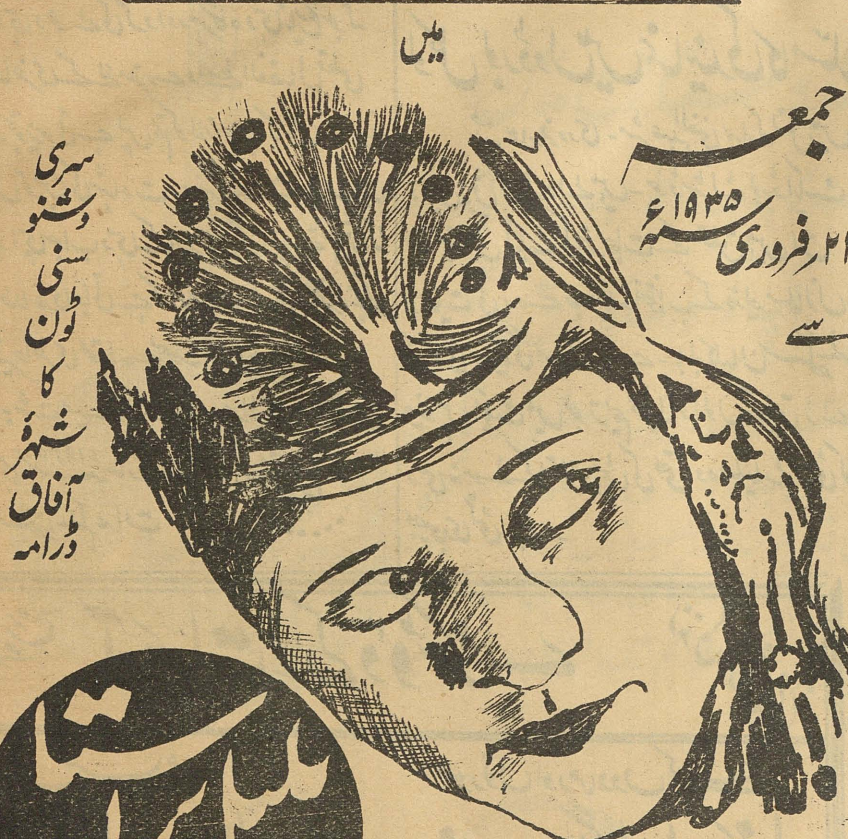 میں
جمعہ
فروری ۱۹۳۵ء
سے
سری
وشنو
سنی
ٹون
کا
شہرۂ
آفاق
ڈرامہ
بلبل